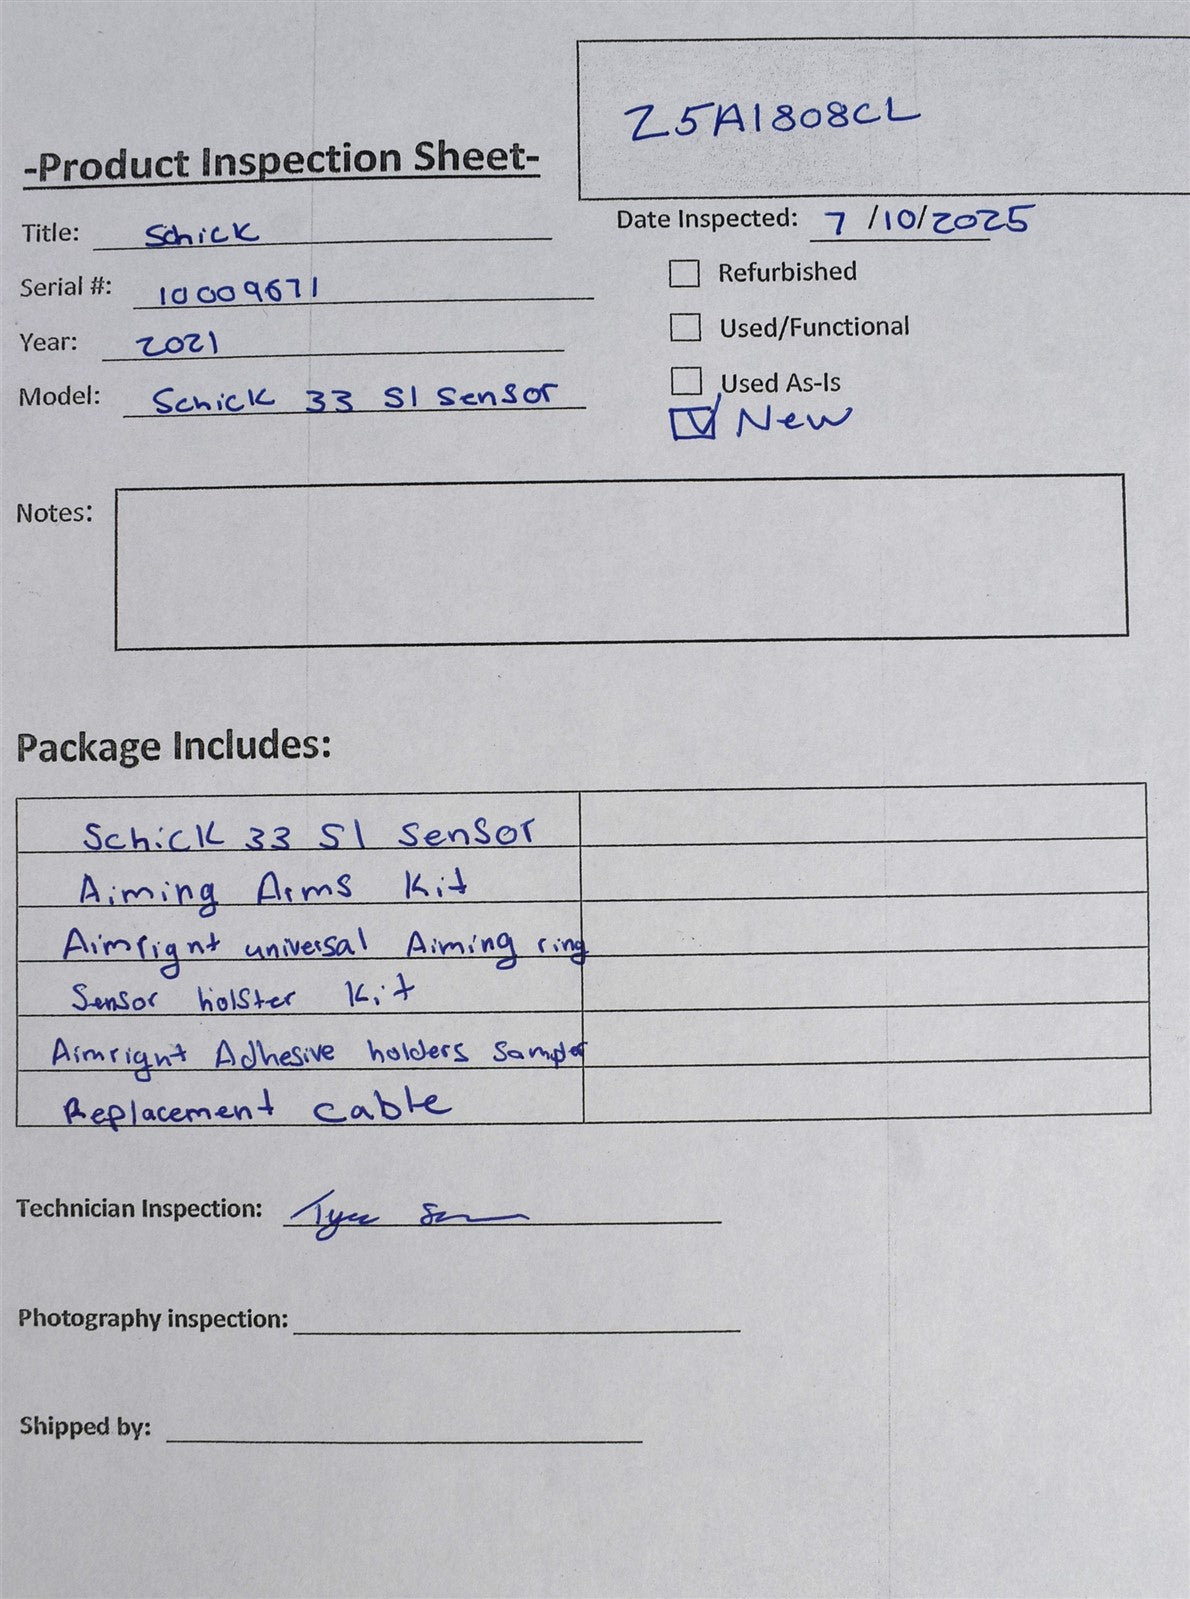 Z5A1808CL
-Product Inspection Sheet-
Title: Schick
Date Inspected: 7/10/2025
Serial #: 10009671
Refurbished
Year: 2021
Used/Functional
Model: Schick 33 S1 Sensor
Used As-Is
New
Notes:
Package Includes:
Schick 33 S1 Sensor
Aiming Arms Kit
Aimright universal Aiming ring
Sensor holster Kit
Aimright Adhesive holders
Replacement cable
Technician Inspection:
Photography inspection:
Shipped by: